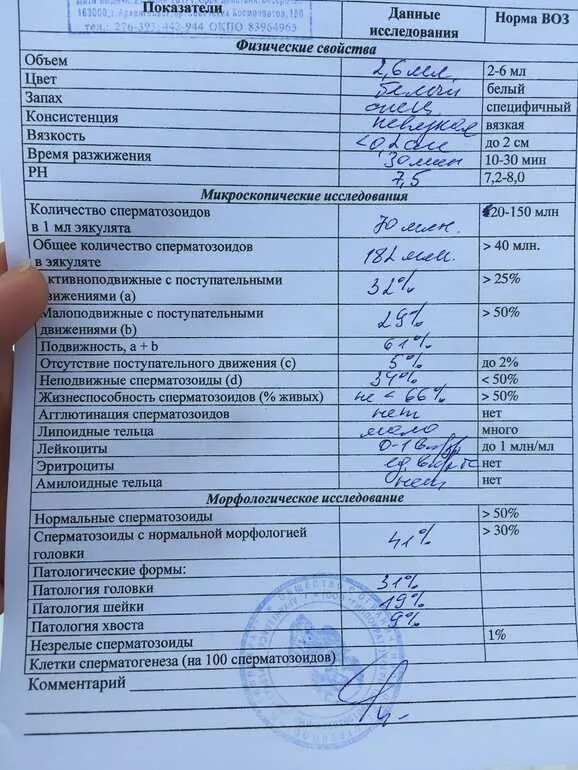 163000, г. Архангельск,
тел.: 276-393, 442-944 ОКПО 83964965
Показатели Данные исследования Норма ВОЗ
Физические свойства
Объем 2,6 мл 2-6 мл
Цвет белый белый
Запах спец специфичный
Консистенция невязкая вязкая
Вязкость <0,2 см до 2 см
Время разжижения 30 мин 10-30 мин
РН 7,5 7,2-8,0
Микроскопические исследования
Количество сперматозоидов
в 1 мл эякулята 70 млн. 20-150 млн
Общее количество сперматозоидов
в эякуляте 182 млн. > 40 млн.
активноподвижные с поступательными
движениями (a) 32% > 25%
Малоподвижные с поступательными
движениями (b) 29% > 50%
Подвижность, a + b 61%
Отсутствие поступательного движения (c) 5% до 2%
Неподвижные сперматозоиды (d) 34% < 50%
Жизнеспособность сперматозоидов (% живых) не < 66% > 50%
Агглютинация сперматозоидов нет нет
Липоидные тельца мало много
Лейкоциты 0-1 в до 1 млн/мл
Эритроциты ед в нет
Амилоидные тельца нет нет
Морфологическое исследование
Нормальные сперматозоиды > 50%
Сперматозоиды с нормальной морфологией
головки 41% > 30%
Патологические формы:
Патология головки 31%
Патология шейки 19%
Патология хвоста 9%
Незрелые сперматозоиды 1%
Клетки сперматогенеза (на 100 сперматозоидов)
Комментарий